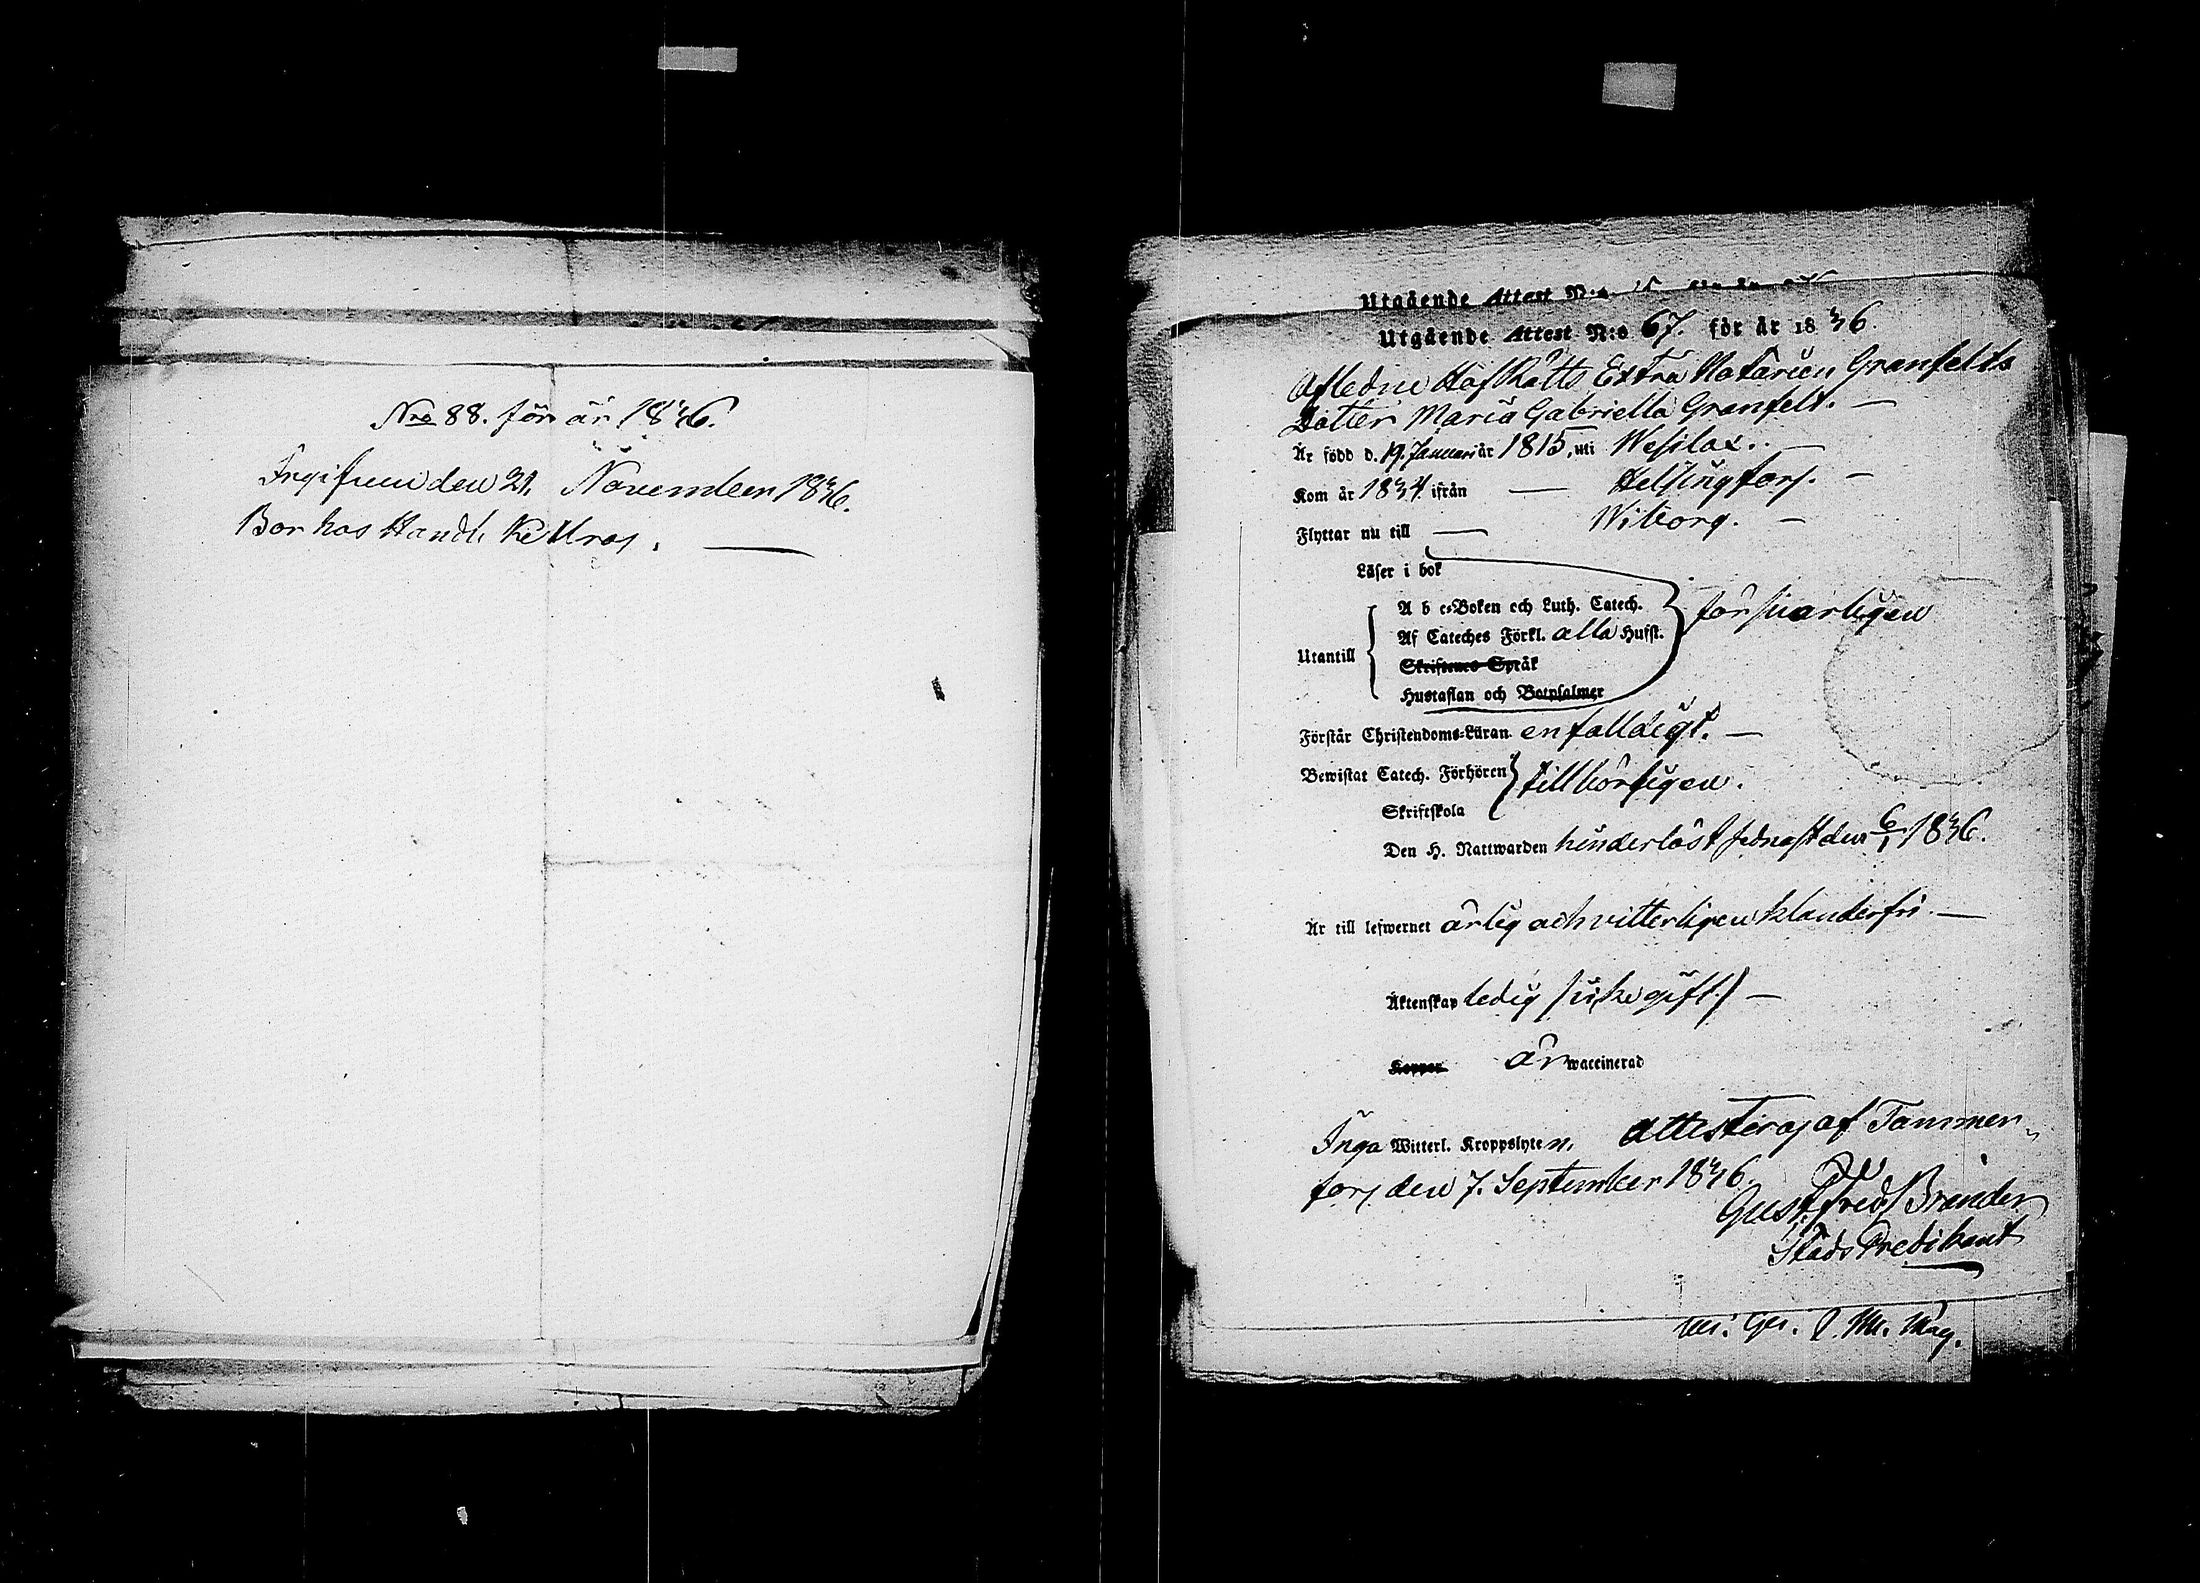 Nro 88. för år 1836.
Ingifven den 21. November 1836.
Bor hos Handl.
Utgående Attest N:o
Utgående Attest N:o 67. för år 1836.
Afledne HofRätts Extra Notarien Granfelts
Dotter Maria Gabriella Granfelt. —
Är född d. 19. Januari år 1815, uti Wesilax. —
Kom år 1834 ifrån — Helsingfors. —
Flyttar nu till — Wiborg. —
Läser i bok
A b c-Boken och Luth. Catech.
Af Cateches Förkl. alla Hufst.
försvarligen
Utantill
Skriftenes Språk
Hustaflan och Botpsalmer
Förstår Christendoms-Läran enfalldigt. —
Bewistat Catech. Förhören
tillbörligen.
Skriftskola
Den H. Nattwarden hinderlöst sednast den 6/1 1836.
Är till lefwernet ärlig och vitterligen klanderfri. —
Äktenskap ledig /icke gift./ —
Koppor är waccinerad
Inga Witterl. Kroppslyten. Attesteras af Tammer-
fors den 7. September 1836.
Gust. Fred. Brander
Stads Predikant